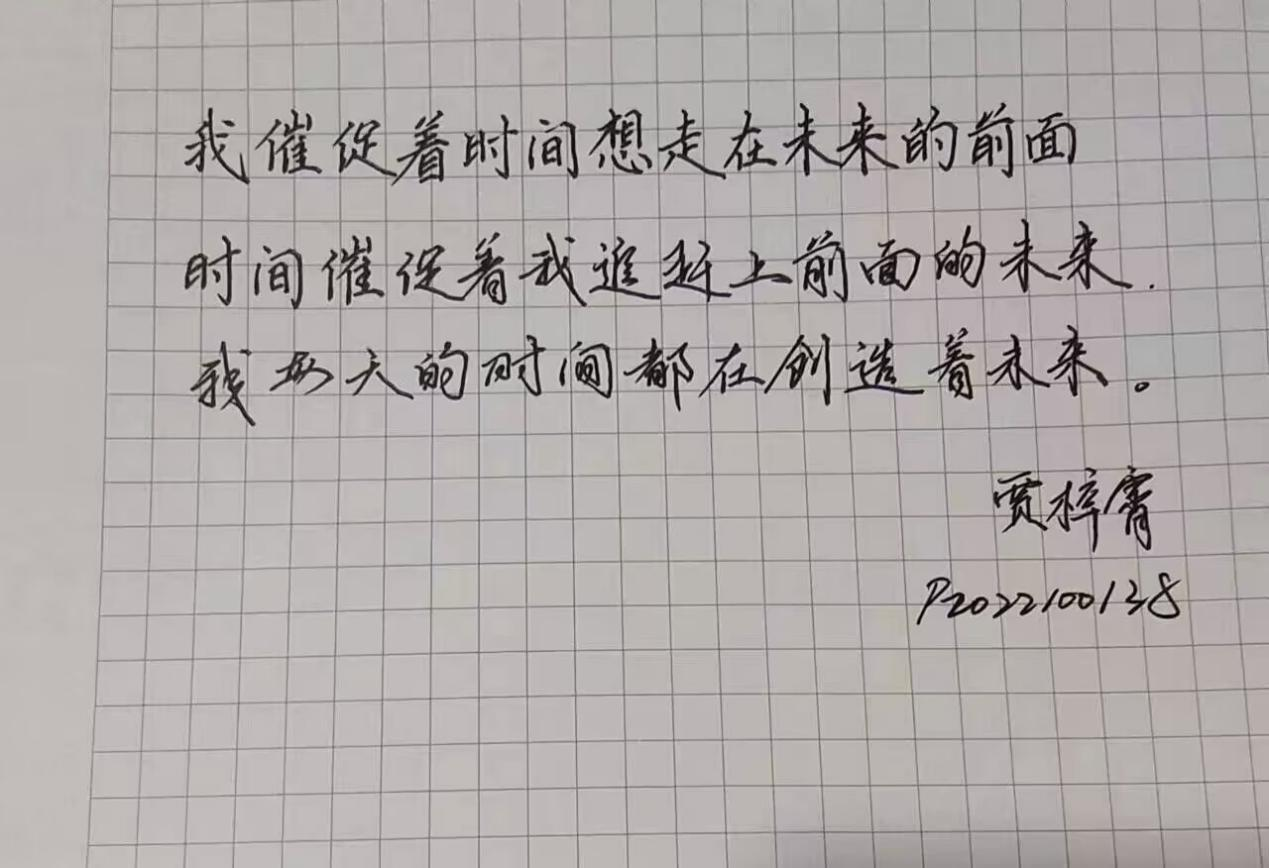 我催促着时间想走在未来的前面
时间催促着我追赶上前面的未来.
我每天的时间都在创造着未来。
贾梓霄
P2022100138